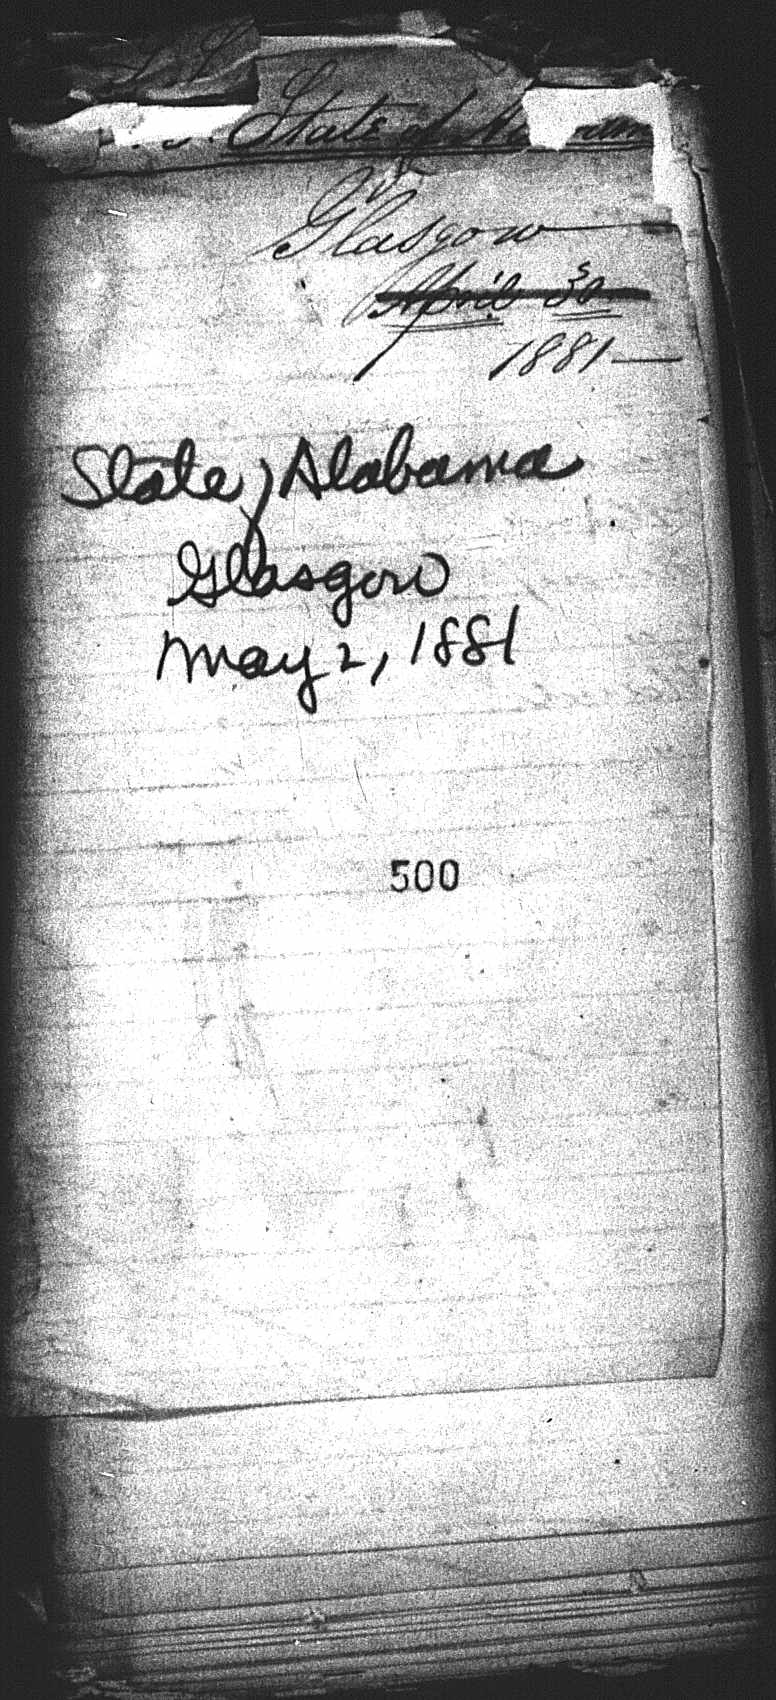 State of
Glasgow
April 30
1881
State, Alabama
Glasgow
May 2, 1881
500